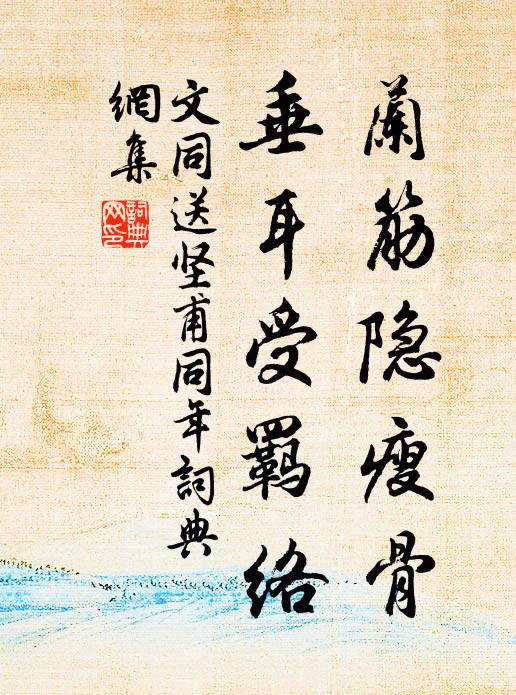 蘭筋隐瘦骨
垂耳受羈絡
文同送坚甫同年詞典
網集
詞典
网印